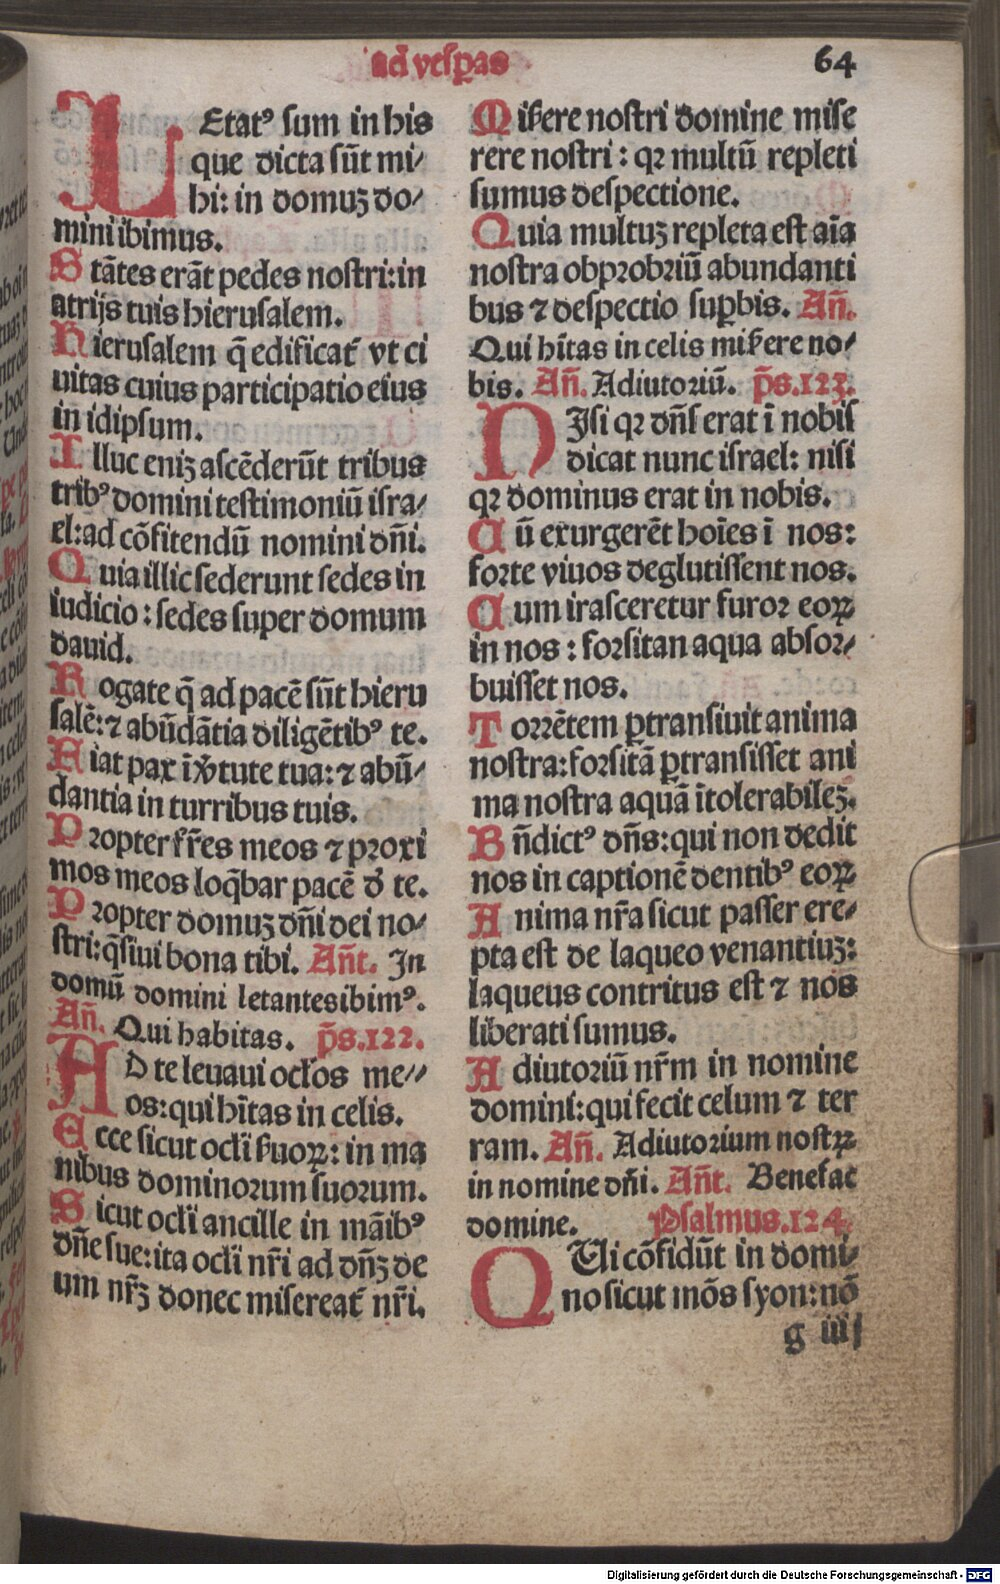 ad vesꝑas
64
LEtatꝰ sum in his
que dicta sūt mi/
hi: in domuꝫ do/
mini ibimus.
Stātes erāt pedes nostri: in
atrijs tuis hierusalem.
Hierusalem q̄ edificat᷑ vt ci
uitas cuius participatio eius
in idipsum.
Illuc eniꝫ ascēderūt tribus
tribꝰ domini testimoniū isra/
el: ad cōfitendū nomini dn̄i.
Quia illic sederunt sedes in
iudicio: sedes super domum
dauid.
Rogate q̄ ad pacē sūt hieru
salē: ⁊ abūdātia diligētibꝰ te.
Fiat pax ī v̾tute tua: ⁊ abū/
dantia in turribus tuis.
Propter fr̄es meos ⁊ proxi
mos meos loq̄bar pacē d̾ te.
Propter domuꝫ dn̄i dei no/
stri: q̄siui bona tibi. An̄t. In
domū domini letantes ibimꝰ.
An̄. Qui habitas. p̄s.122.
AD te leuaui ocl̓os me//
os: qui hītas in celis.
Ecce sicut ocl̓i ẜuoꝝ: in ma
nibus dominorum suorum.
Sicut ocl̓i ancille in māibꝰ
dn̄e sue: ita ocl̓i nr̄i ad dn̄ꝫ de
um nr̄ꝫ donec misereat᷑ nr̄i.
Miẜere nostri domine mise
rere nostri: qꝛ multū repleti
sumus despectione.
Quia multuꝫ repleta est aīa
nostra obprobriū abundanti
bus ⁊ despectio suꝑbis. An̄.
Qui hītas in celis miẜere no/
bis. An̄. Adiutoriū. p̄s.123.
NIsi qꝛ dn̄s erat ī nobis
dicat nunc israel: nisi
qꝛ dominus erat in nobis.
Cū exurgerēt hoīes ī nos:
forte viuos deglutissent nos.
Cum irasceretur furor eoꝝ
in nos: forsitan aqua absor/
buisset nos.
Torrētem ꝑtransiuit anima
nostra: forsitā ꝑtransisset ani
ma nostra aquā ītolerabileꝫ.
Bn̄dictꝰ dn̄s: qui non dedit
nos in captionē dentibꝰ eoꝝ
Anima nr̄a sicut passer ere/
pta est de laqueo venantiuꝫ:
laqueus contritus est ⁊ nos
liberati sumus.
Adiutoriū nr̄m in nomine
domini: qui fecit celum ⁊ ter
ram. An̄. Adiutorium nostꝝ
in nomine dn̄i. An̄t. Benefac
domine. Psalmus.124.
QUi cōfidūt in domi/
no sicut mōs syon: nō
g iiij
Digitalisierung gefördert durch die Deutsche Forschungsgemeinschaft - DFG